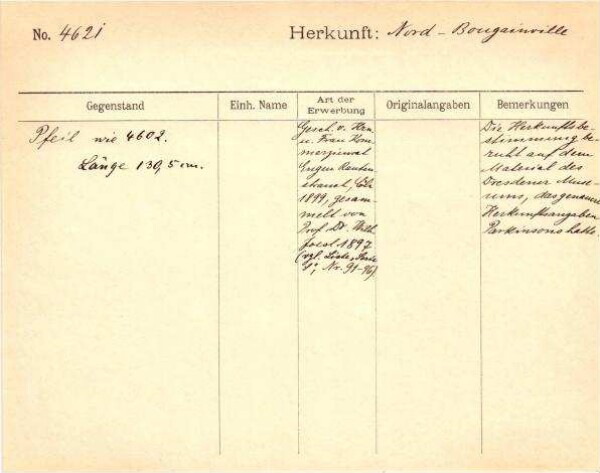 No. 4621
Herkunft: Nord-Bougainville
Gegenstand
Einh. Name
Art der Erwerbung
Originalangaben
Bemerkungen
Pfeil wie 4602.
Länge 130,5 cm.
Gesch. v. Herrn
u. Frau Kom-
merzienrat
Eugen Rauten-
strauch, Cöln
1899, gesam-
melt von
Prof. Dr. Wilh.
Joest 1897
(vgl. Liste, Serie
Nr. 91-96)
Die Herkunftsbe-
stimmung be-
ruht auf dem
Material des
Dresdener Muse-
ums, das genauere
Herkunftsangaben
Parkinsons hatte.